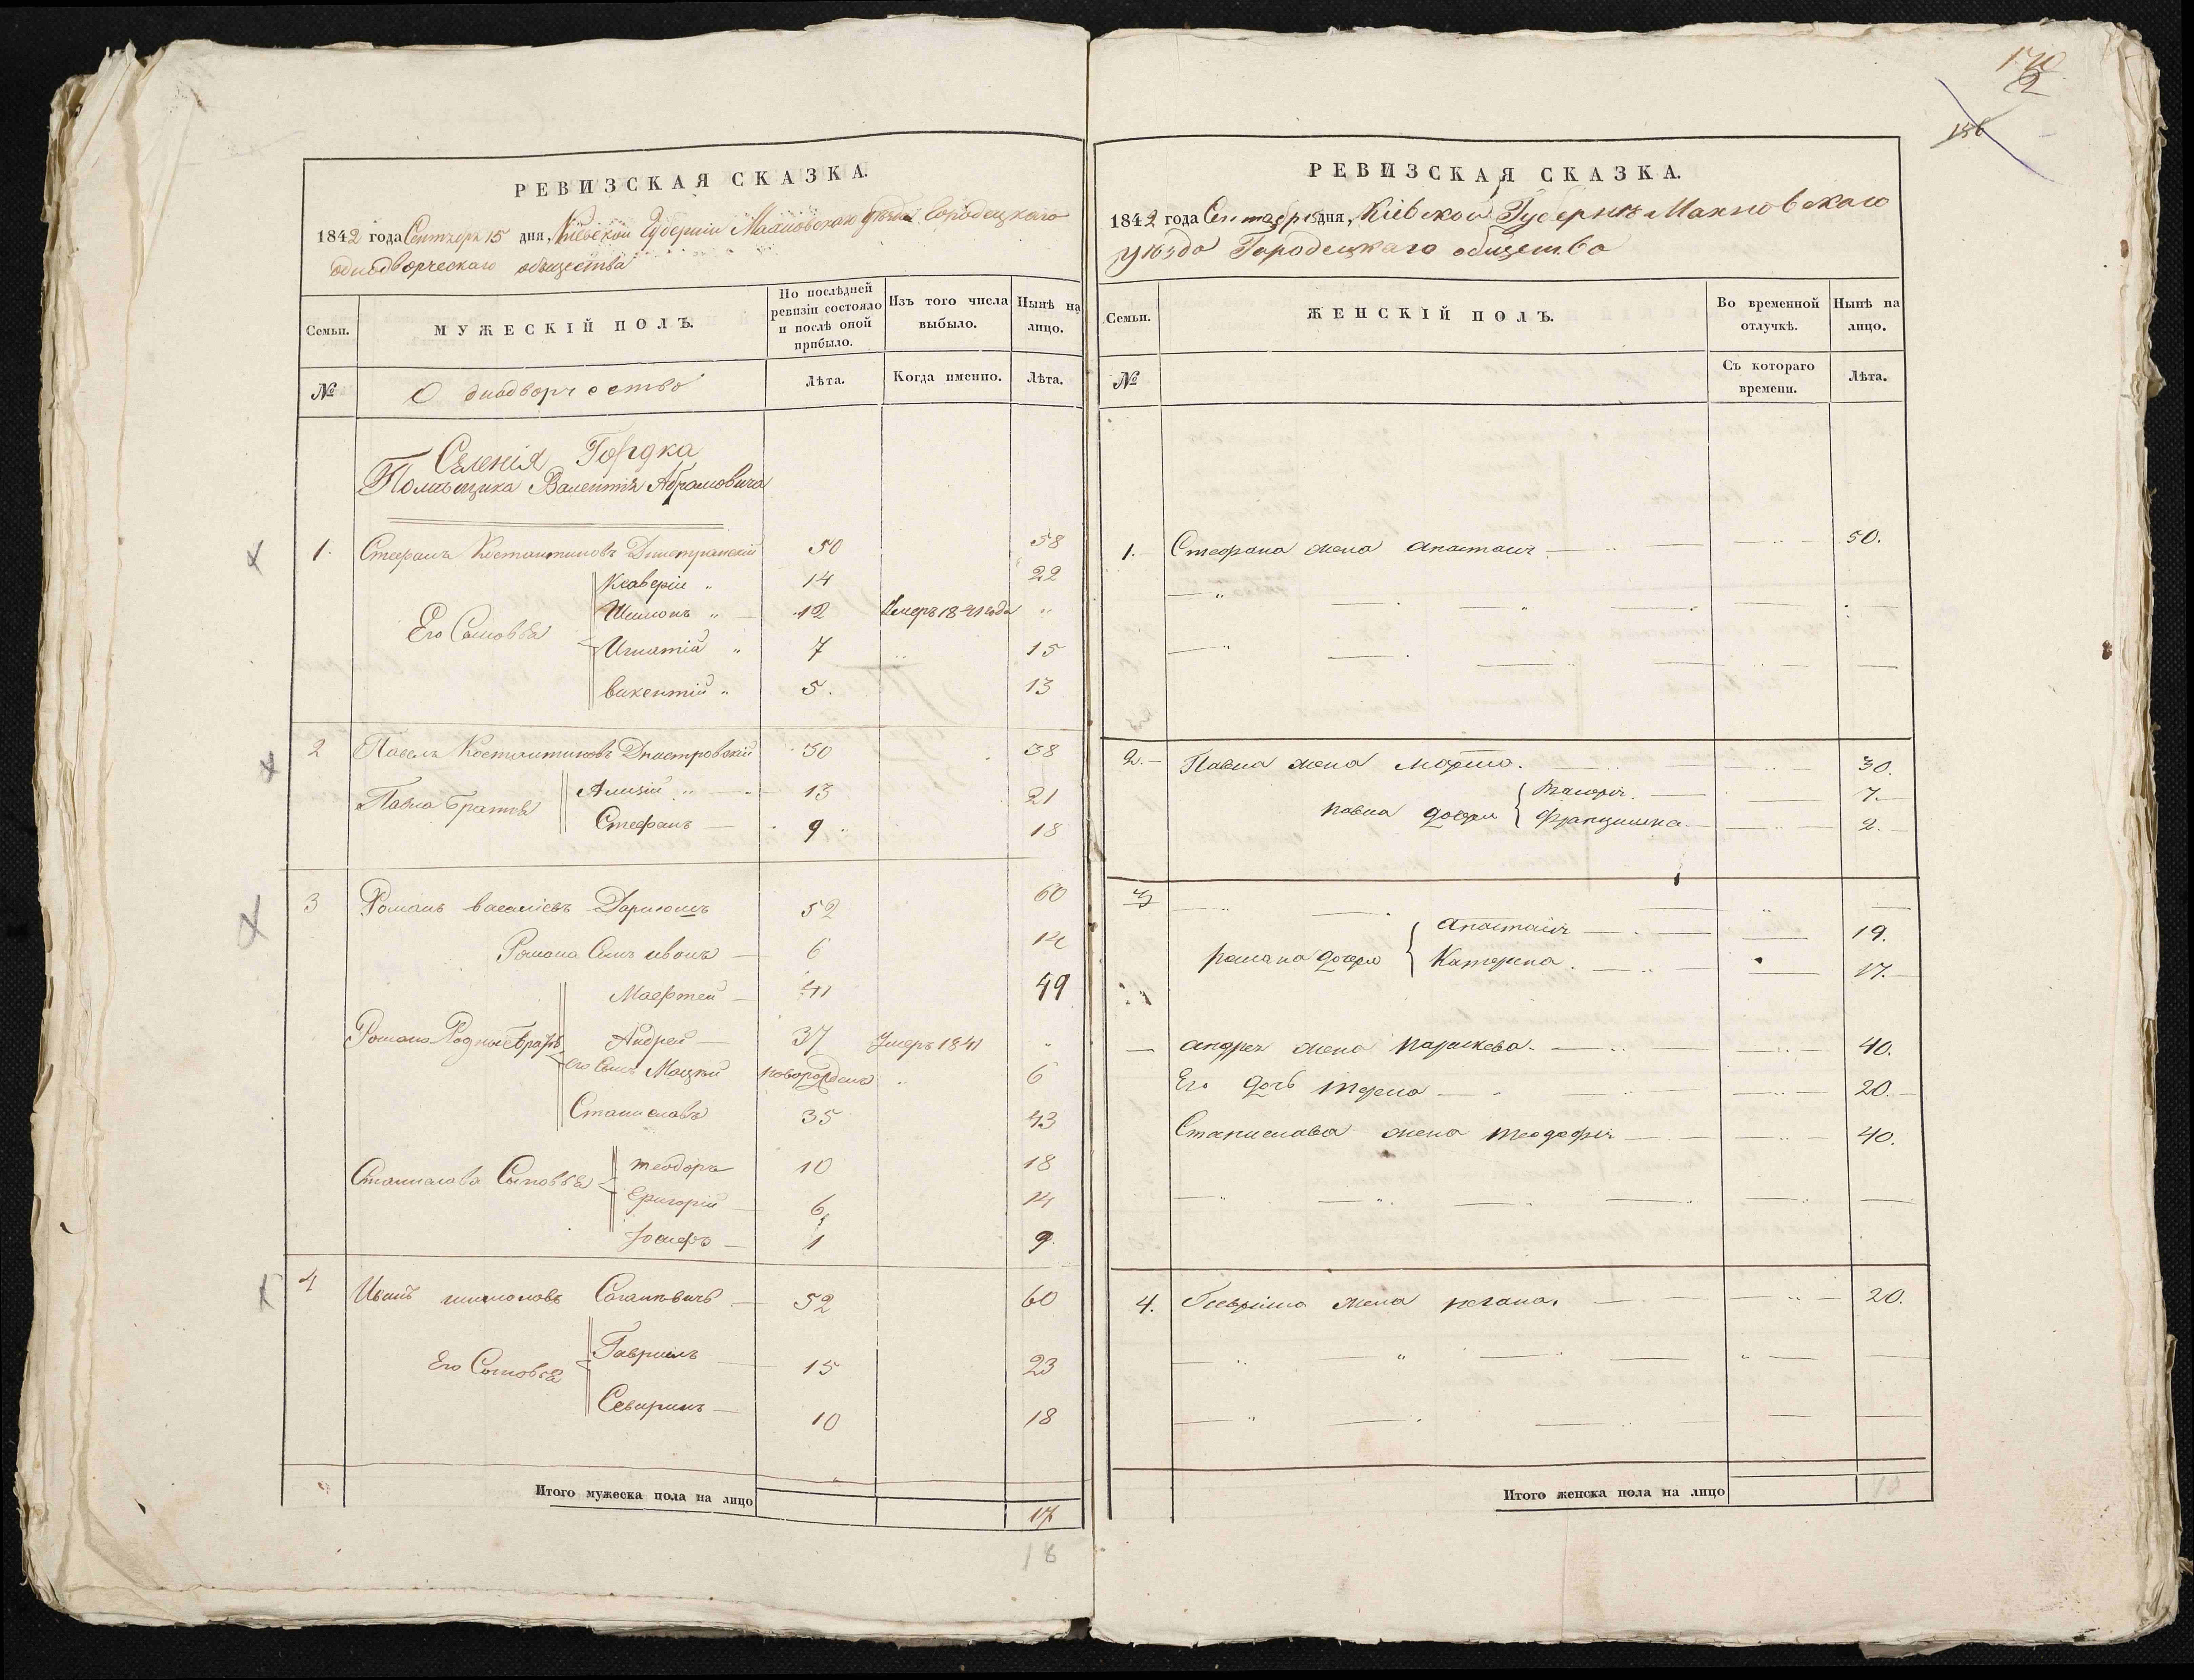 РЕВИЗСКАЯ СКАЗКА.
1842 года Сентября 15 дня, Кіевской Губерніи Махновскаго уѣзда Городецкаго
однодворческаго общества
Семьи.
МУЖЕСКІЙ ПОЛЪ.
По послѣдней ревизіи состояло и послѣ оной прибыло.
Изъ того числа выбыло.
Нынѣ на лицо.
№
Однодворчество
Лѣта.
Когда именно.
Лѣта.
Селенія Городка
Помѣщика Валентія Абрамовича
1. Стефанъ Костантиновъ Днистранскій 50 58
Ксаверіи „ 14 22
Шимонъ „ 12 Умеръ 1841 года „
Его Сыновья
Игнатій „ 7 15
викентій „ 5. 13
2 Павелъ Костантиновъ Днистровскій 30 38
Павла Братья
Ализій „ 13 21
Стефанъ 9 18
3 Романъ василіевъ Дарнюшъ 52 60
Романа Сынъ иванъ 6 14
Мафтей 41 49
Романа Родные Братья
Андрей 37 Умеръ 1841 „
его Сынъ Мацѣй новорожденъ „ 6
Станиславъ 35 43
Станислава Сыновья
теодоръ 10 18
Григорій 6 14
Іосифъ 1 9.
4 Иванъ шимоновъ 52 60
Его Сыновья
Гавриилъ 15 23
Северинъ 10 18
Итого мужеска пола на лицо
17
18
170
2
156
РЕВИЗСКАЯ СКАЗКА.
1842 года Сентября 15 дня, Кіевской Губерніѣ Махновскаго
уѣзда Городецкаго общества
Семьи.
ЖЕНСКІЙ ПОЛЪ.
Во временной отлучкѣ.
Нынѣ на лицо.
№
Съ котораго времени.
Лѣта.
1. Стефана жена анастасія 50.
2. Павла жена марта. 30.
павла дочери 7.
францишка 2.
3
анастасія 19.
романа дочери
Катерина. 17.
андрея жена параскева. 40.
Его дочь 20.
Станислава жена теодофія 40.
4. Гавріила жена 20.
Итого женска пола на лицо
10